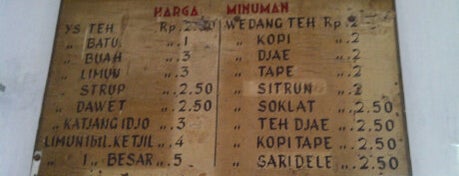 HARGA MINUMAN
YS. TEH Rp. 2.50
„ BATU „ 1
„ BUAH „ 3
„ LIMUN „ 3
„ STRUP „ 2.50
„ DAWET „ 2.50
„ KATJANG IDJO „ 3
LIMUN 1 bil. KETJIL „ 4
„ 1 „ BESAR „ 5
WEDANG TEH Rp. 2
„ KOPI „ 2
„ DJAE „ 2
„ TAPE „ 2
„ SITRUN „ 2
„ SOKLAT „ 2.50
„ TEH DJAE „ 2.50
„ KOPI TAPE „ 2.50
„ SARI DELE „ 2.50